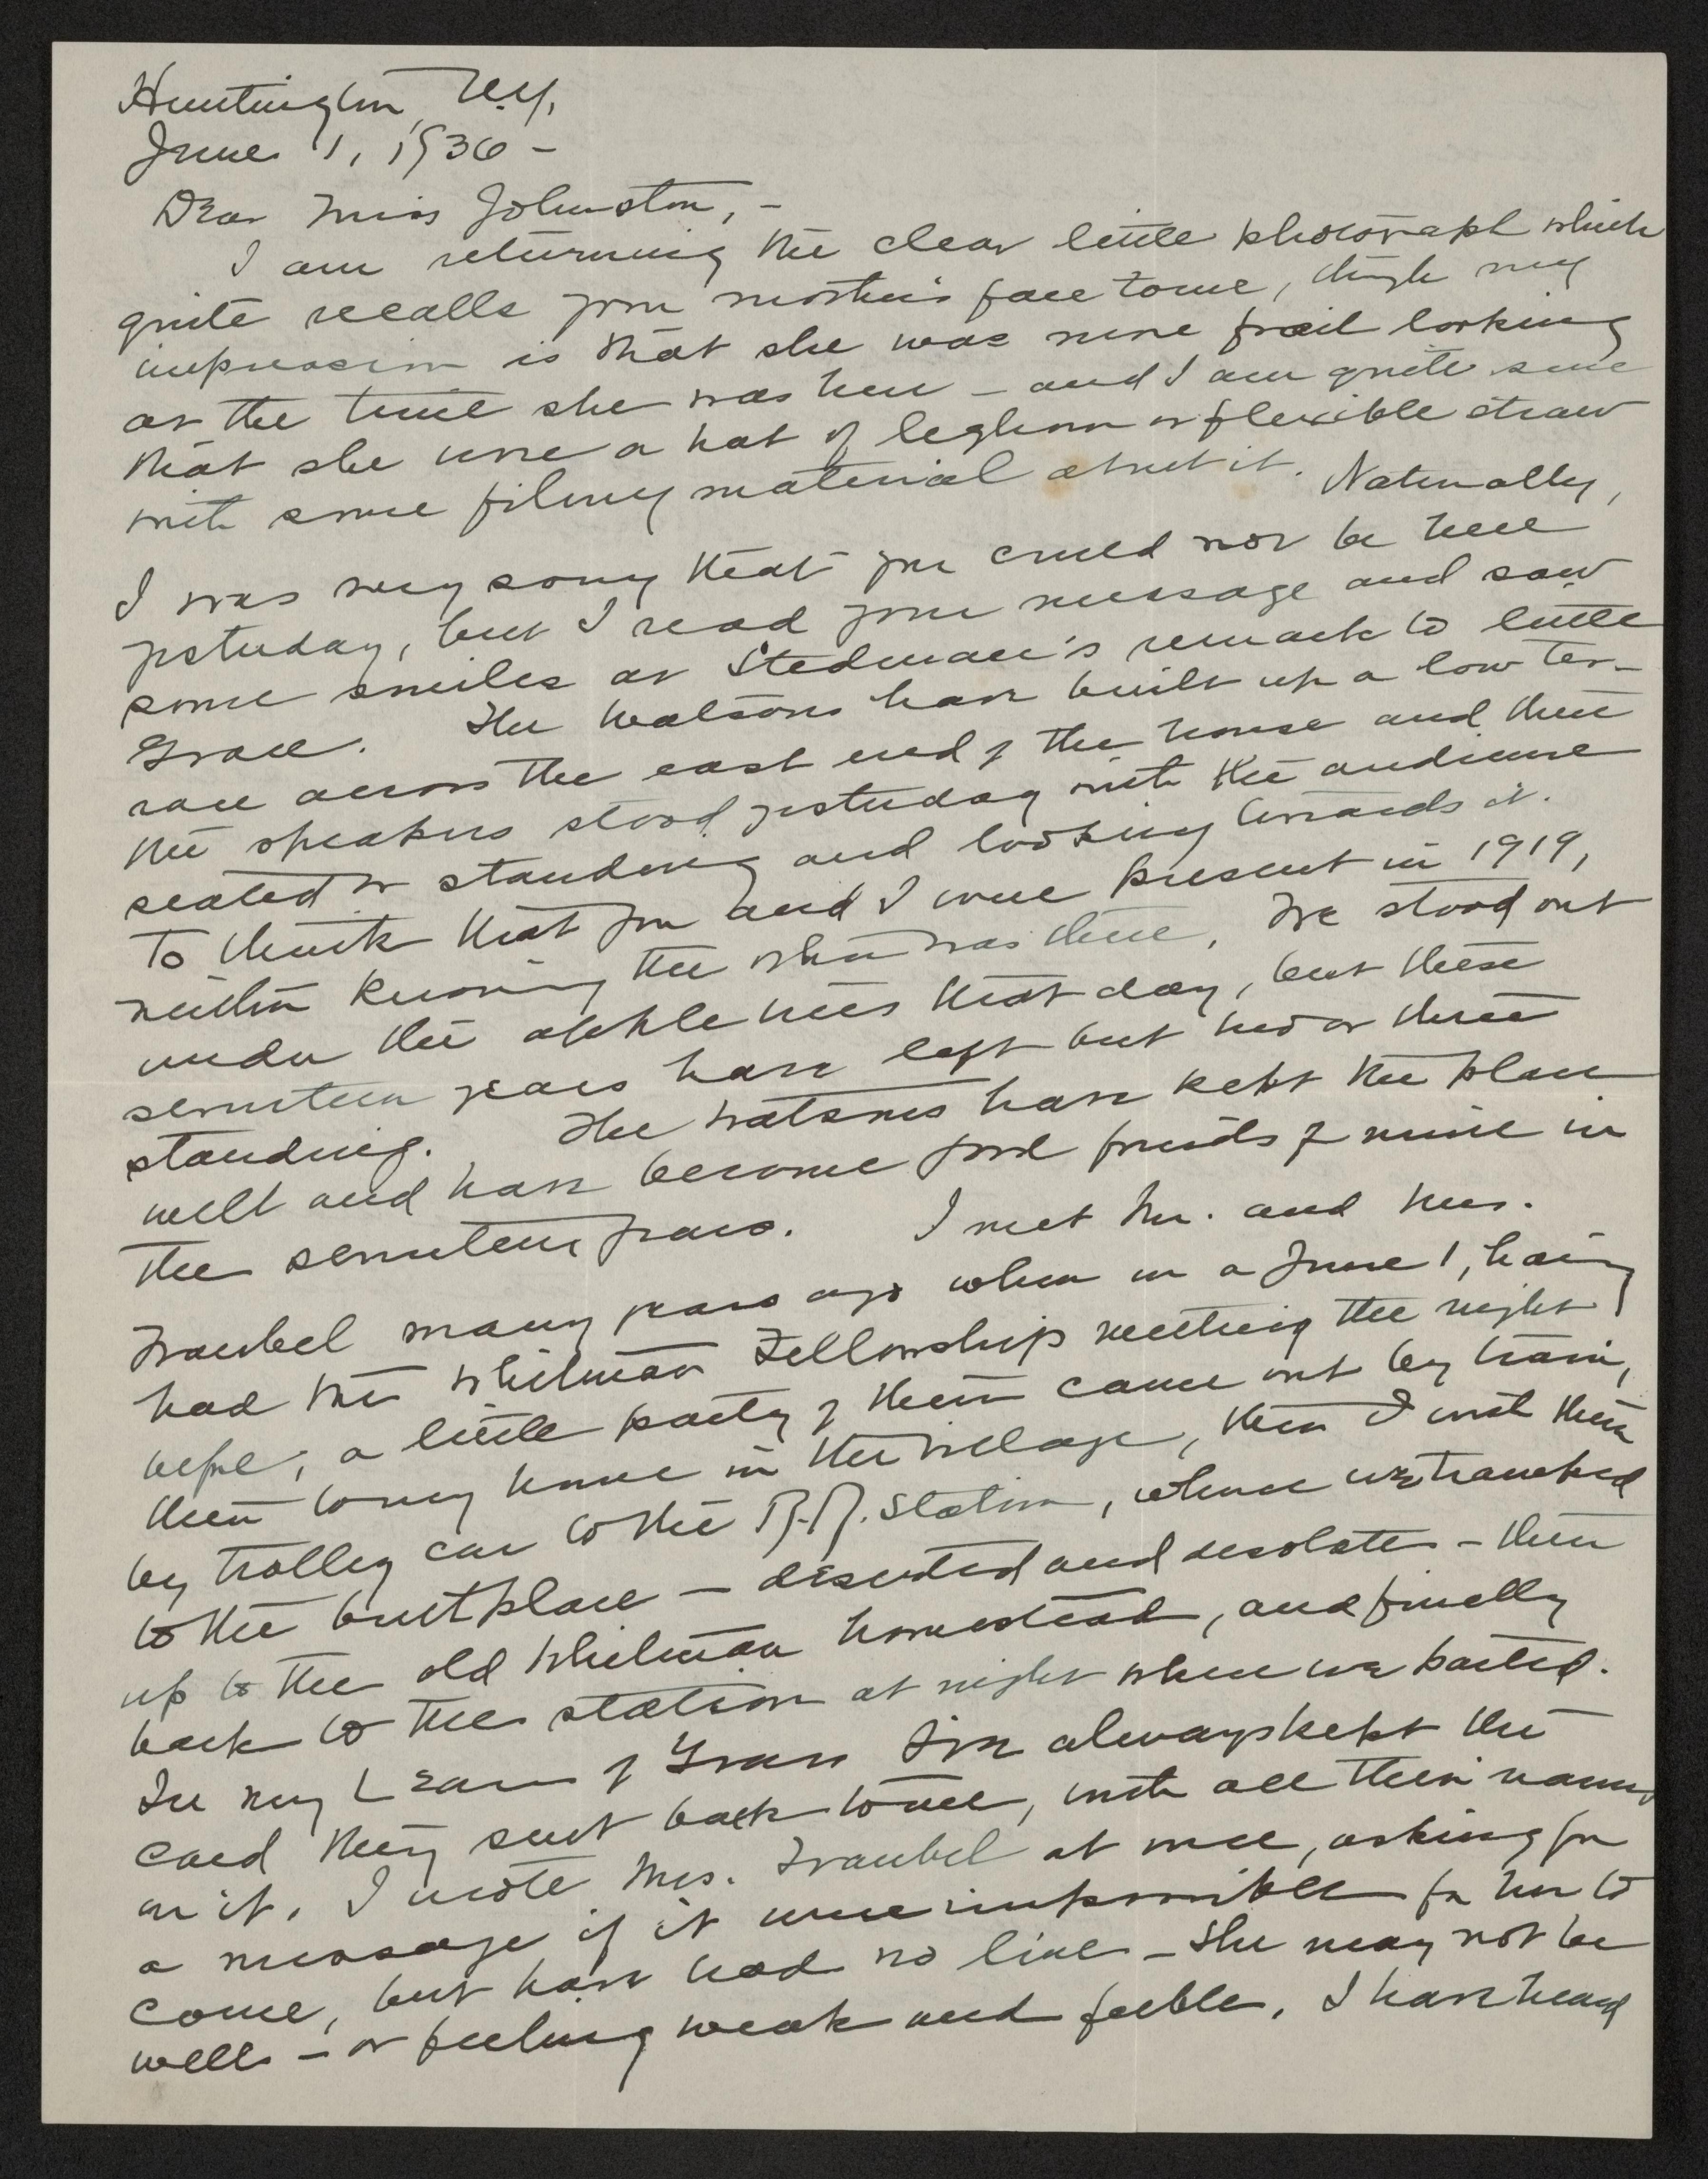 Huntington, N.Y.
June 1, 1936 –
Dear Miss Johnston, –
I am returning the clear little photograph which
quite recalls your mother's face to me, though my
impression is that she was more frail looking
at the time she was here – and I am quite sure
that she wore a hat of leghorn or flexible straw
with some filmy material about it. Naturally,
I was very sorry that you could not be here
yesterday, but I read your message and saw
some smiles at Stedman's remark to little
Grace. The Watsons have built up a low ter-
race across the east end of the house and there
the speakers stood yesterday with the audience
seated or standing and looking towards it.
To think that you and I were present in 1919,
neither knowing the other was there. We stood out
under the apple trees that day, but these
seventeen years have left but two or three
standing. The Watsons have kept the place
well and have become good friends of mine in
the seventeen years. I met Mr. and Mrs.
Traubel many years ago when on a June 1, having
had the Whitman Fellowship meeting the night
before, a little party of them came out by train,
then to my home in the village, then I with them
by trolley car to the R.R. Station, whence we tramped
to the birthplace – deserted and desolate – then
up to the old Whitman homestead, and finally
back to the station at night where we parted.
In my Leaves of Grass I've always kept the
card they sent back to me, with all their names
on it. I wrote Mrs. Traubel at once, asking for
a message if it were impossible for her to
come, but have had no line – She may not be
well – or feeling weak and feeble. I have heard